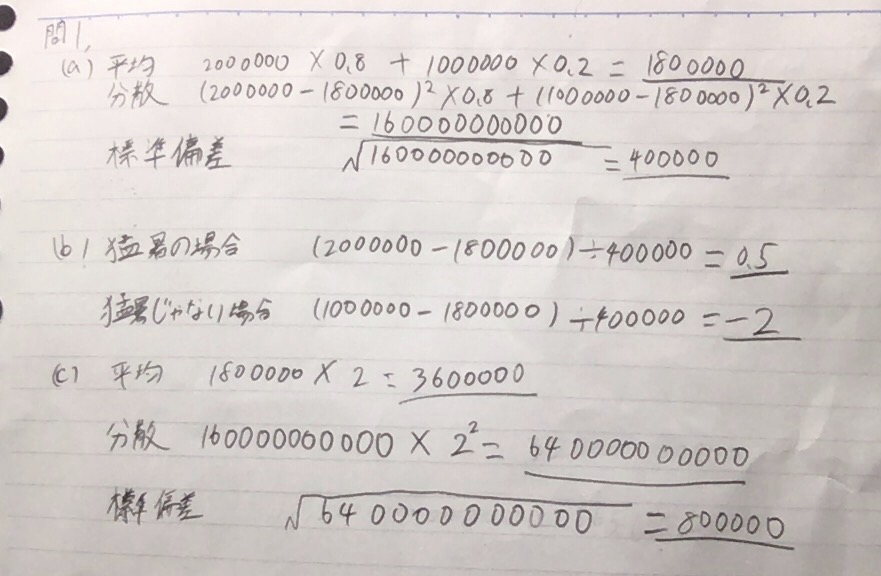 問1,
(a) 平均 2000000 × 0.8 + 1000000 × 0.2 = 1800000
分散 (2000000 - 1800000)² × 0.8 + (1000000 - 1800000)² × 0.2
= 160000000000
標準偏差 √160000000000 = 400000
(b) 猛暑の場合 (2000000 - 1800000) ÷ 400000 = 0.5
猛暑じゃない場合 (1000000 - 1800000) ÷ 400000 = -2
(c) 平均 1800000 × 2 = 3600000
分散 160000000000 × 2² = 640000000000
標準偏差 √640000000000 = 800000